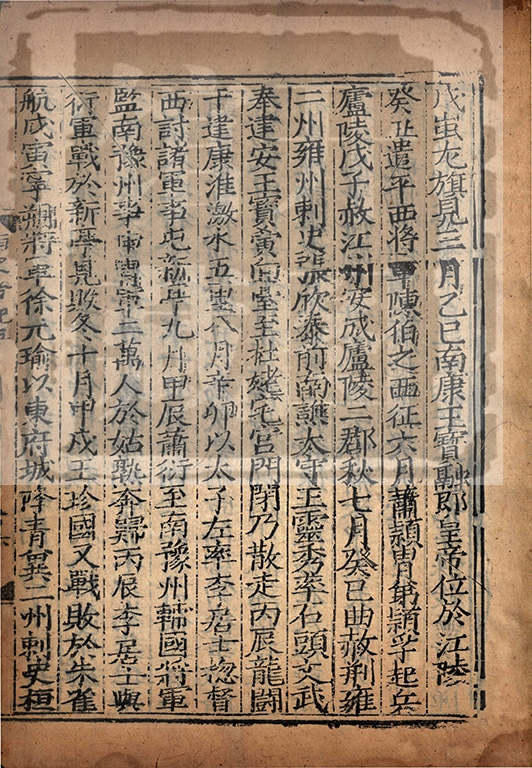 戊蚩尤旗見三月乙巳南康王寶融即皇帝位於江陵
癸丑遣平西將軍陳伯之西征六月蕭穎胄弟穎孚起兵
廬陵戊子赦江州安成廬陵二郡秋七月癸巳曲赦荊雍
二州雍州刺史張欣泰前南譙太守王靈秀率石頭文武
奉建安王寶寅向臺至杜姥宅宮門閉乃散走丙辰龍鬪
于建康淮激水五里八月辛卯以太子左率李居士總督
西討諸軍事屯新亭九月甲辰蕭衍至南豫州輔國將軍
監南豫州事申冑軍二萬人於姑熟奔歸丙辰李居士與
衍軍戰於新亭見敗冬十月甲戌王珍國又戰敗於朱雀
航戊寅寧朔將軍徐元瑜以東府城降青冀二州刺史桓